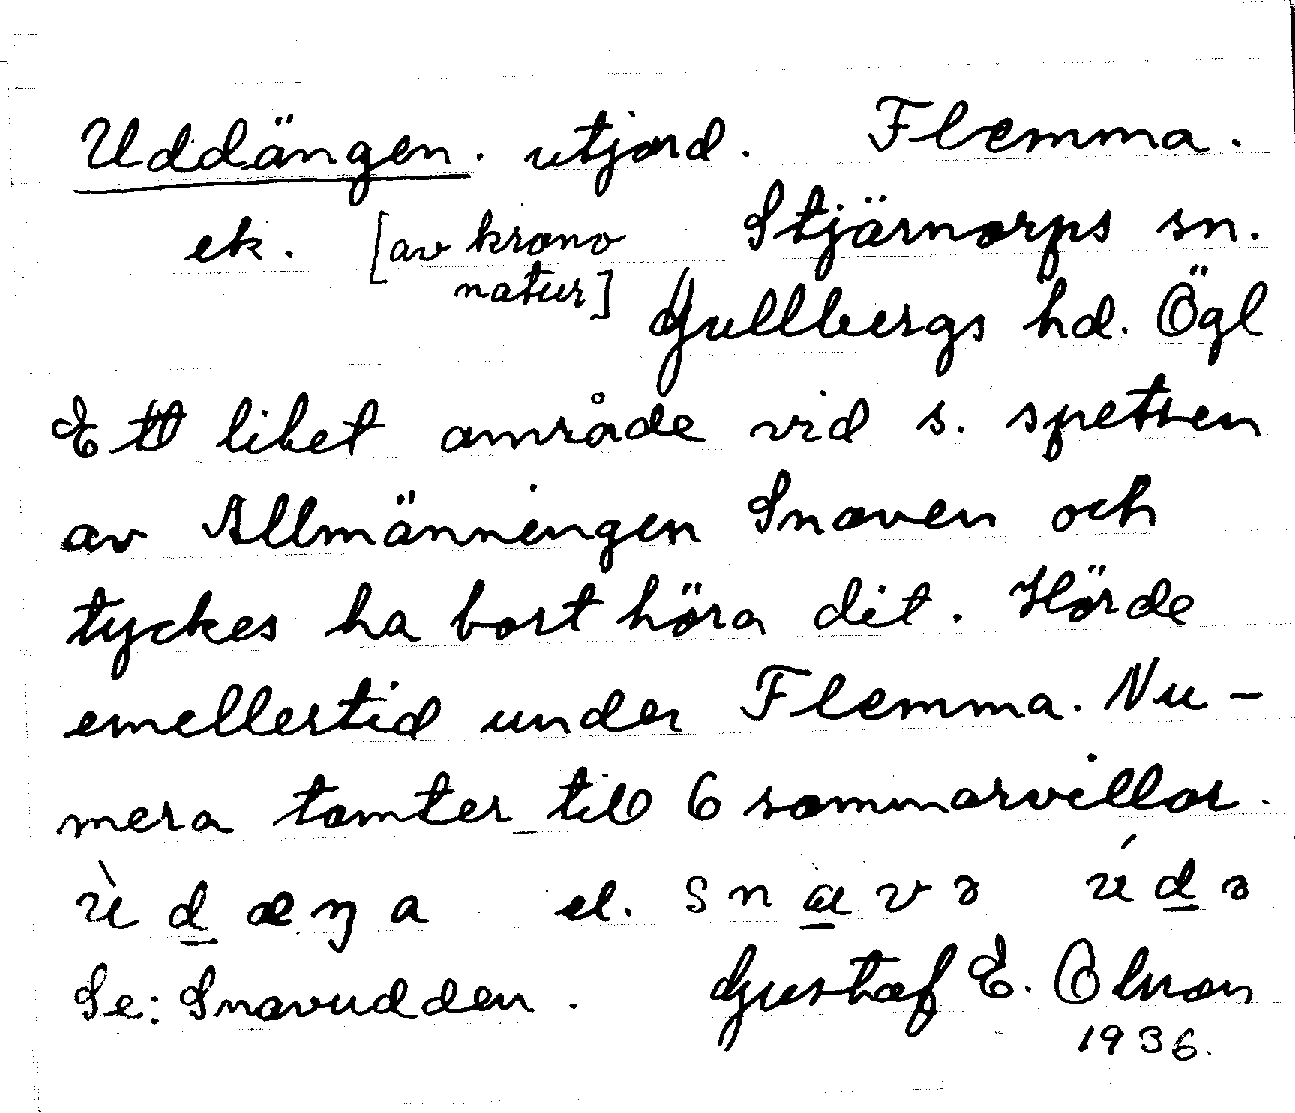 Uddängen. utjord. Flemma.
ek. [av krono Stjärnorps sn.
natur] Gullbergs hd. Ögl
Ett litet område vid s. spetsen
av Allmänningen Snaven och
tyckes ha bort höra dit. Hörde
emellertid under Flemma. Nu-
mera tomter till 6 sommarvillor.
ùdæŋa el. snavə údə
Se: Snavudden. Gustaf E. Olsson
1936.